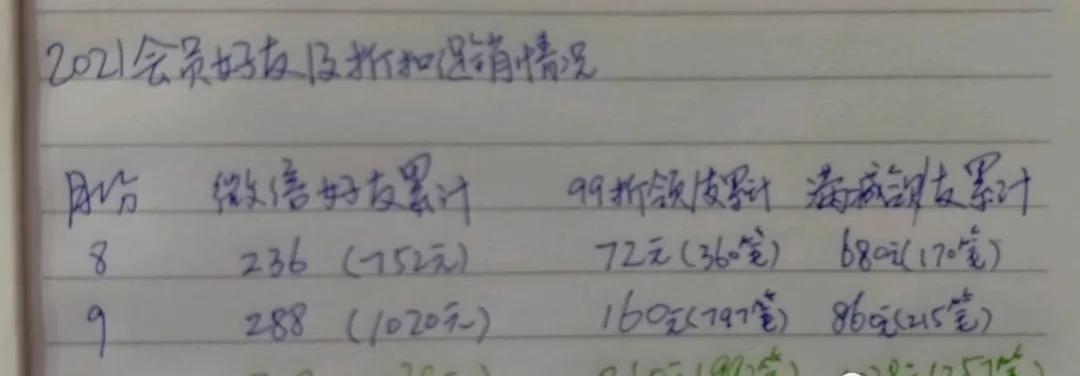 2021会员好友及折扣促销情况
月份 微信好友累计 99折领皮累计 满减领皮累计
8 236 (752元) 72元(360笔) 680元(170笔)
9 288 (1020元) 160元(797笔) 860元(215笔)